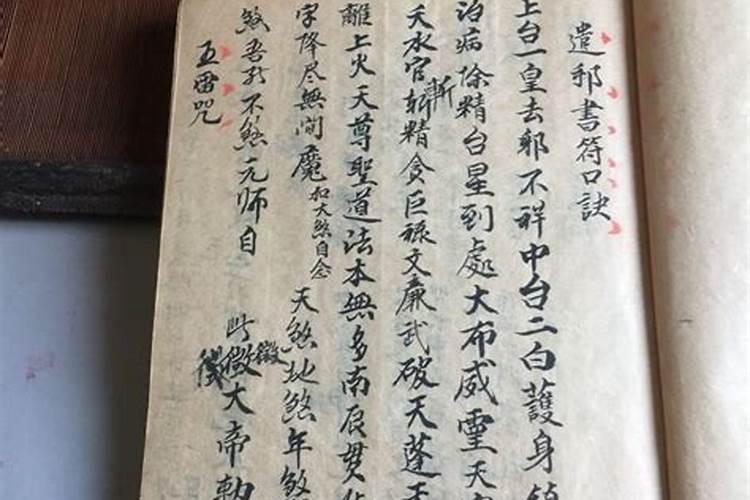 遣邪書符口訣
上台一皇去邪不祥中台二白護身
治病除精台星到處大布威靈天
天水官斬斬精貪巨祿文廉武破天蓬
離上火天尊聖道法本無多南辰貫
字降尽無間魔加大煞自念天煞地煞年煞
煞吾形不煞元师自此微微大帝勅
五雷咒